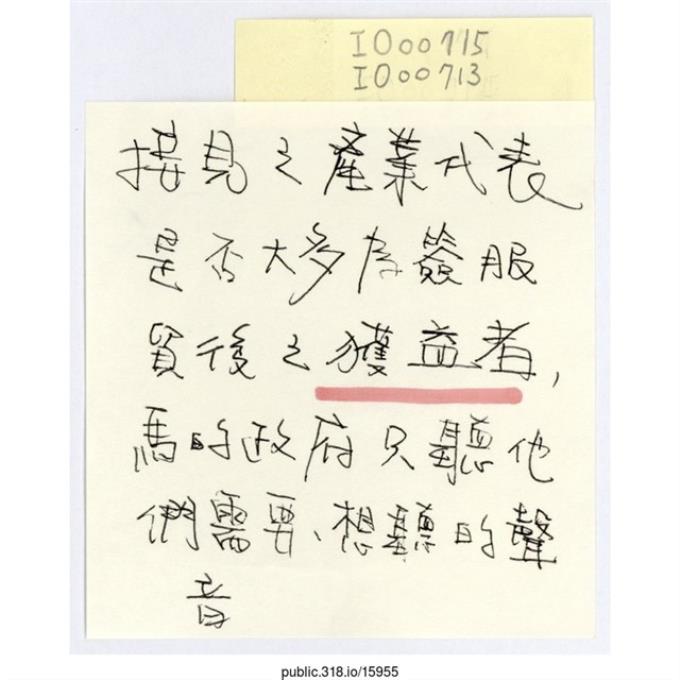 IO00715
IO00713
接見之產業代表
是否大多為簽服
貿後之獲益者,
馬的政府只聽他
們需要、想聽的聲
音
public.318.io/15955